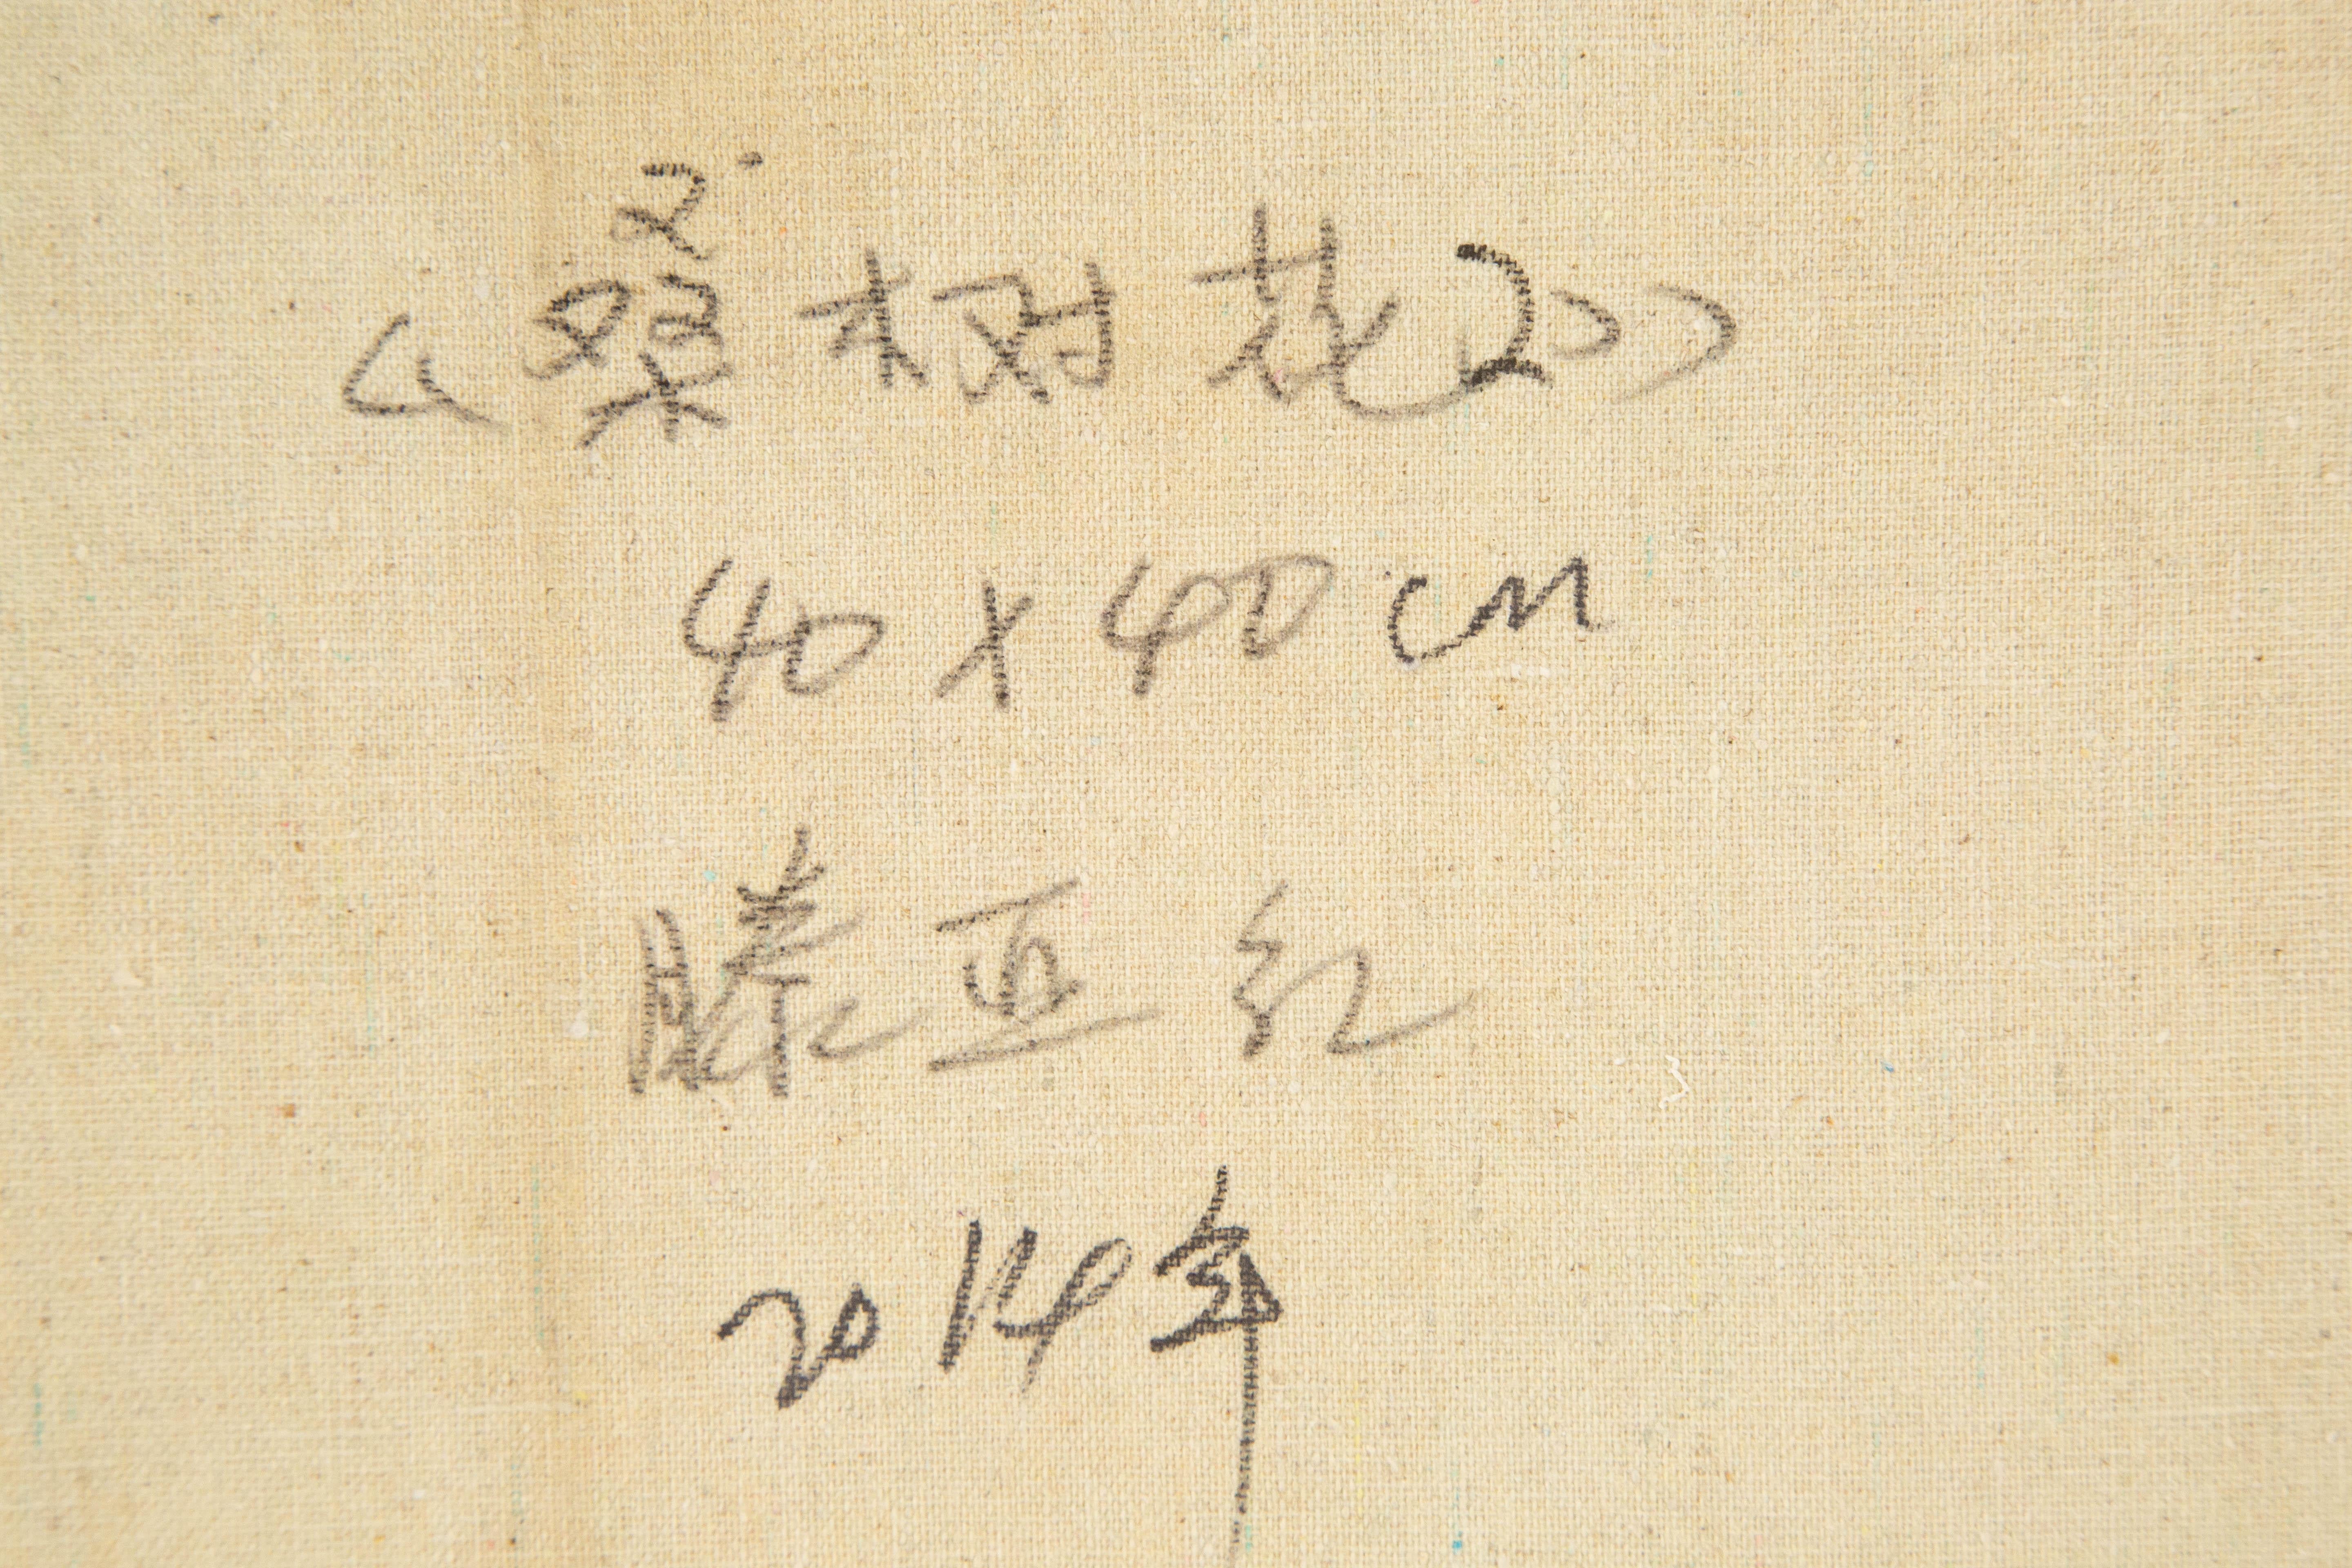 《桑树花2》
40×40cm
滕亚红
2014年